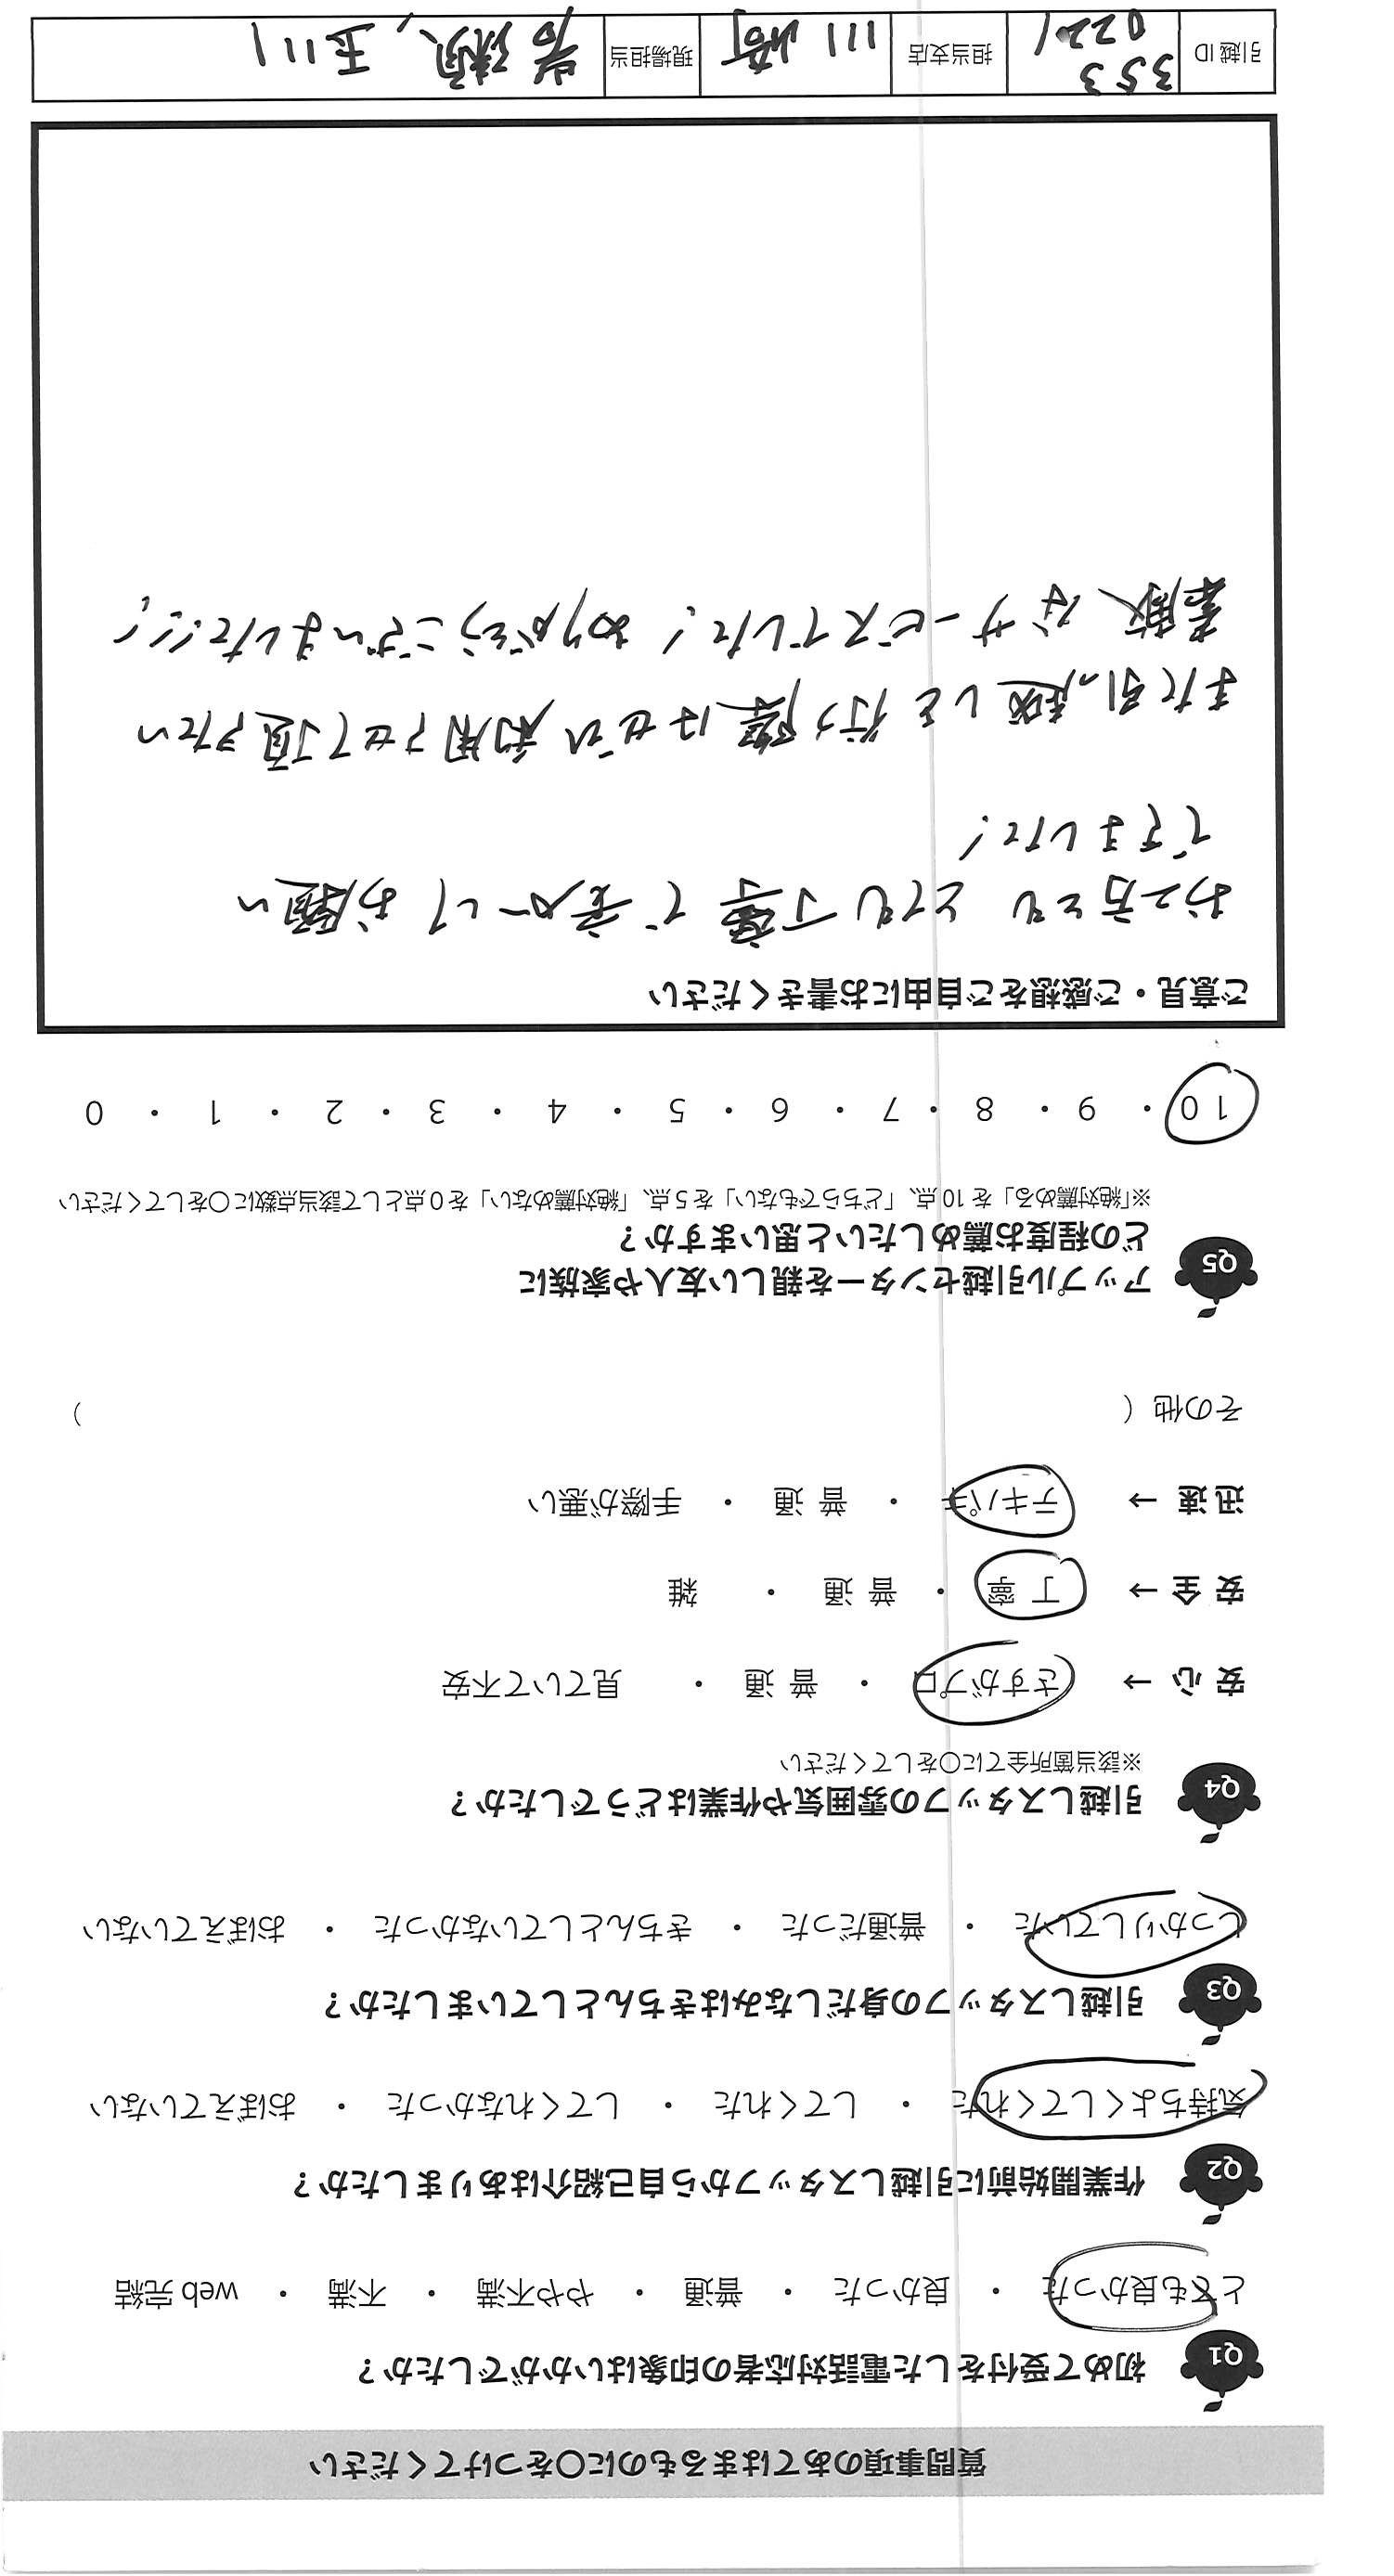 質問事項のあてはまるものに〇をつけてください
Q1 初めて受付をした電話対応者の印象はいかがでしたか？
とても良かった ・ 良かった ・ 普通 ・ やや不満 ・ 不満 ・ web 完結
Q2 作業開始前に引越しスタッフから自己紹介はありましたか？
気持ちよくしてくれた ・ してくれた ・ してくれなかった ・ おぼえていない
Q3 引越しスタッフの身だしなみはきちんとしていましたか？
しっかりしていた ・ 普通だった ・ きちんとしていなかった ・ おぼえていない
Q4 引越しスタッフの雰囲気や作業はどうでしたか？
※該当箇所全てに〇をしてください
安 心 → さすがプロ ・ 普 通 ・ 見ていて不安
安 全 → 丁 寧 ・ 普 通 ・ 雑
迅 速 → テキパキ ・ 普 通 ・ 手際が悪い
その他（ ）
Q5 アップル引越センターを親しい友人や家族に
どの程度お薦めしたいと思いますか？
※「絶対薦める」を 10 点、「どちらでもない」を 5 点、「絶対薦めない」を 0 点として該当点数に〇をしてください
10 ・ 9 ・ 8 ・ 7 ・ 6 ・ 5 ・ 4 ・ 3 ・ 2 ・ 1 ・ 0
ご意見・ご感想をご自由にお書きください
お二方とも とても丁寧で 安心して お願い
できました!
また引っ越しを行う際はぜひ利用させて頂きたい
素敵なサービスでした! ありがとうございました!!!
引越 ID 353
0221 担当支店 川崎 現場担当 岩瀬、玉川